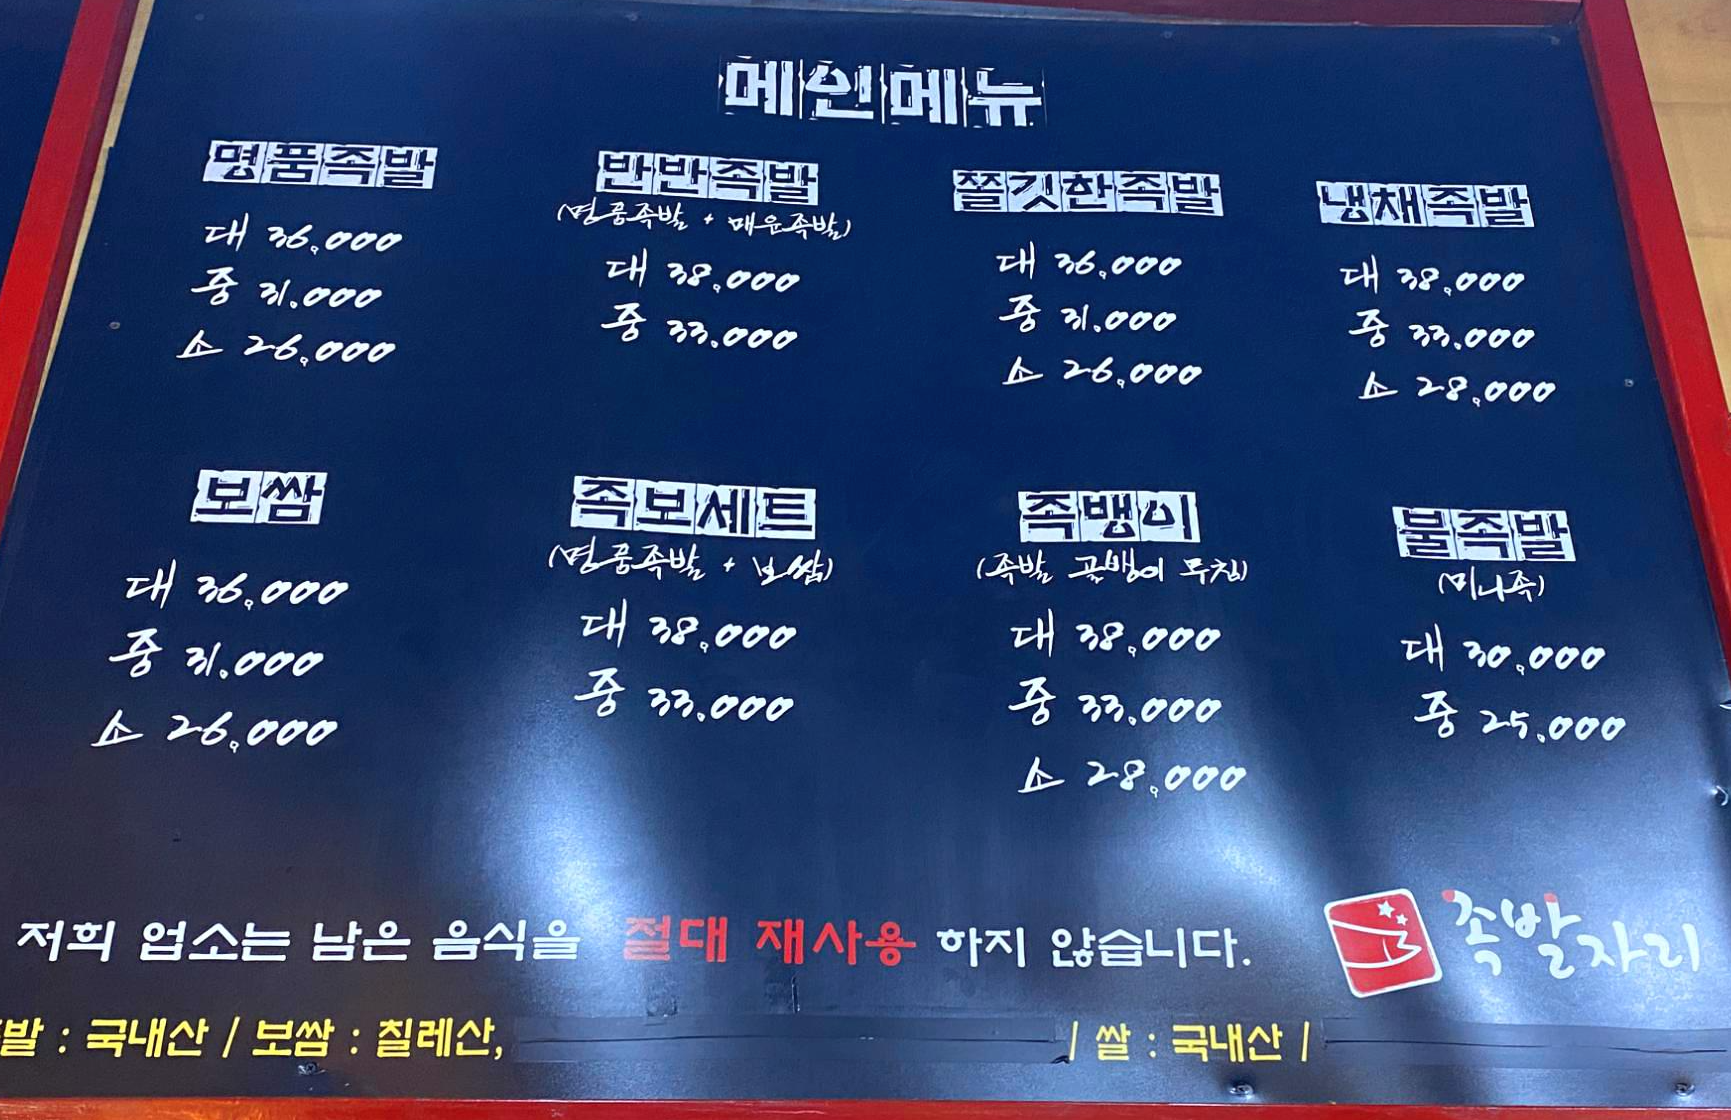 메인메뉴
명품족발
대 36,000
중 31,000
소 26,000
반반족발
(명품족발 + 매운족발)
대 38,000
중 33,000
쫄깃한족발
대 36,000
중 31,000
소 26,000
냉채족발
대 38,000
중 33,000
소 28,000
보쌈
대 36,000
중 31,000
소 26,000
족보세트
(명품족발 + 보쌈)
대 38,000
중 33,000
족뱅이
(족발 골뱅이 무침)
대 38,000
중 33,000
소 28,000
불족발
(미니족)
대 30,000
중 25,000
저희 업소는 남은 음식을 절대 재사용 하지 않습니다.
족발자리
발 : 국내산 / 보쌈 : 칠레산, / 쌀 : 국내산 /